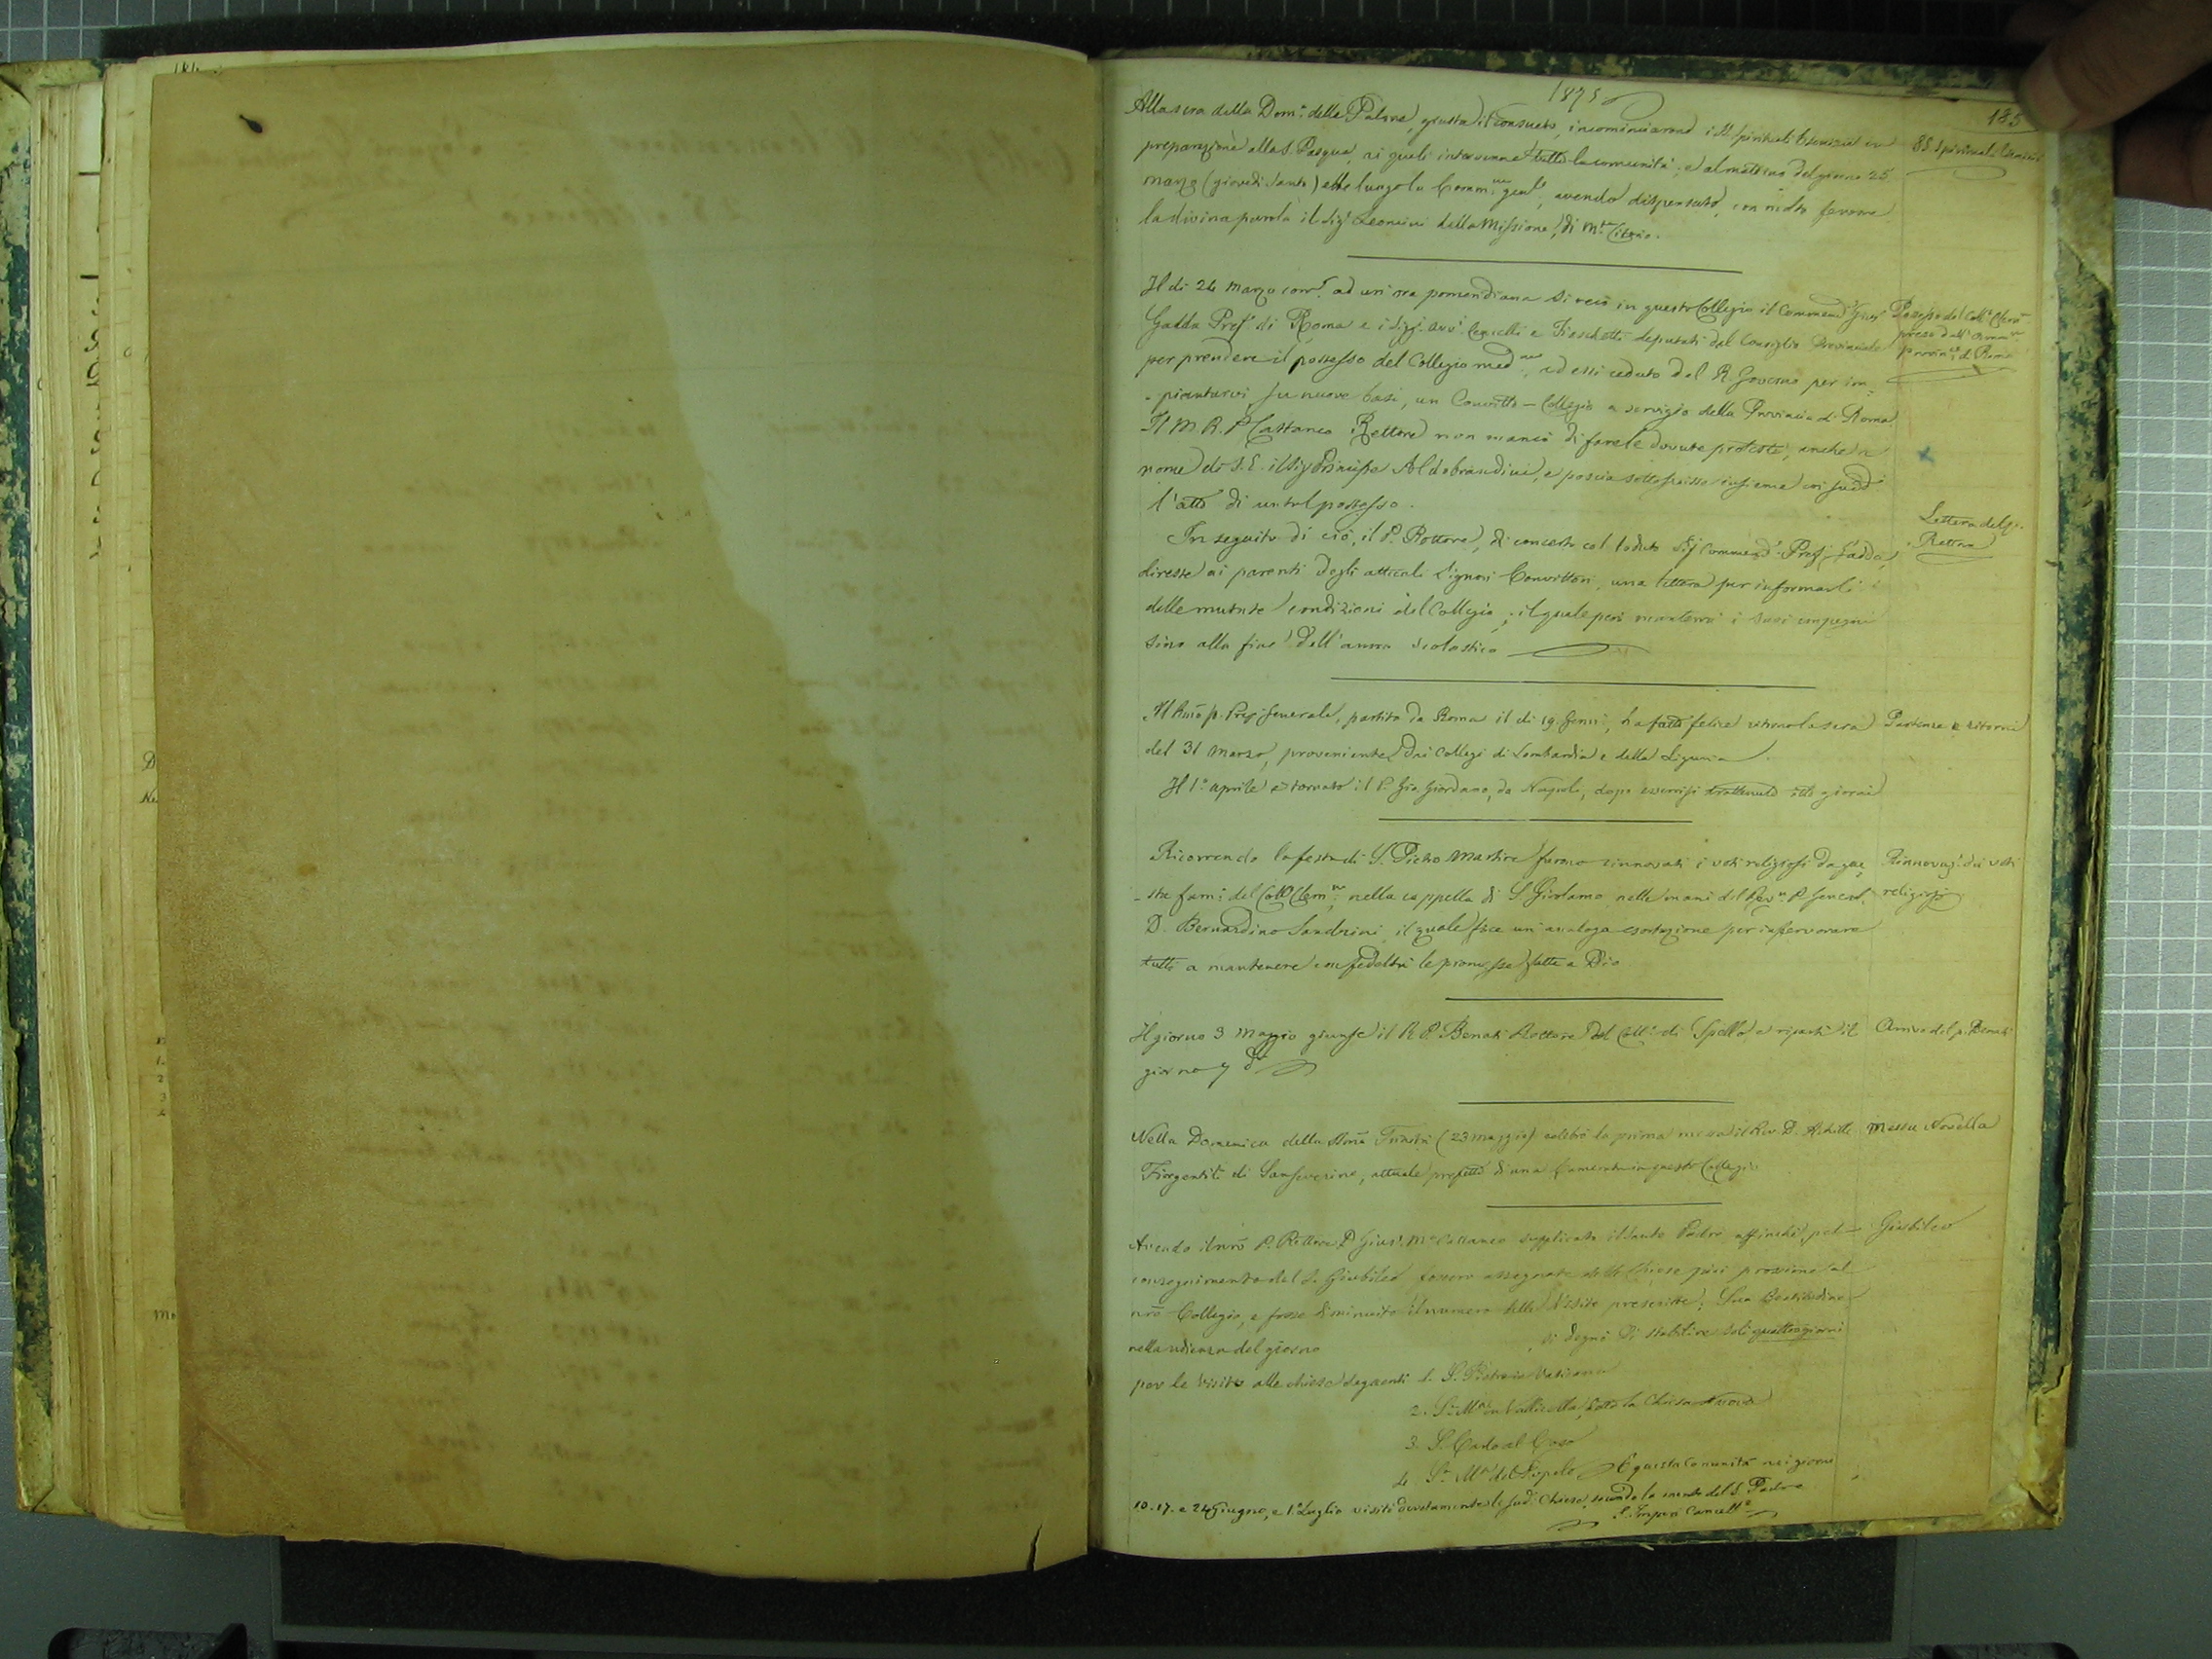 1875
185
Alla sera della Dom.ª delle Palme, giusta il consueto, incominciarono i SS. Spirituali Esercizi in
preparazione alla S. Pasqua, ai quali intervenne tutta la comunità; e al mattino del giorno 25
marzo (giovedì Santo) ebbe luogo la Comm.ne gen.le, avendo dispensato, con molto fervore
la divina parola il Sig.r Leonini della Missione, di M.te Citorio.
SS. Spirituali Esercizi
Il dì 24 marzo corr.e ad un'ora pomeridiana si recò in questo Collegio il Commend.
Gadda Pref.o di Roma e i Sigg. Avv.i e deputati del Consiglio Provinciale
per prendere il possesso del Collegio med.mo, ad essi ceduto dal R. Governo per im-
-piantarvi, su nuove basi, un Convitto-Collegio a servigio della Provincia di Roma
Il M. R. P. Cattaneo Rettore non mancò di fare le dovute proteste, anche a
nome di S. E. il Sig. Principe Aldobrandini, e poscia sottoscrisse insieme coi sudd.
l'atto di un tal possesso.
Possesso del Coll.o Clem.
preso dall'Amm.
provin.le di Roma
In seguito di ciò, il P. Rettore, di concerto col lodato Sig. Commend. Pref. Gadda,
diresse ai parenti degli attuali Signori Convittori una lettera per informarli
delle mutate condizioni del Collegio; il quale però manterrà i suoi impegni
sino alla fine dell'anno scolastico
Lettera del p.
Rettore
Il Rmo p. Prep. Generale, partito da Roma il dì 19 Genn., ha fatto felice ritorno la sera
del 31 marzo, proveniente dai Collegi di Lombardia e della Liguria.
Il 1.º aprile è tornato il P. Gio. Giordano, da Napoli, dopo essersi trattenuto otto giorni
Partenze e ritorni
Ricorrendo la festa di S. Pietro Martire furono rinnovati i voti religiosi da que-
-sta fami. del Coll. Clem.no, nella cappella di S. Girolamo nelle mani del Rev.mo P. General.
D. Bernardino Sandrini, il quale fece un'analoga esortazione per infervorare
tutti a mantenere con fedeltà le promesse fatte a Dio
Rinnovaz. dei voti
religiosi
Il giorno 3 Maggio giunse il R. P. Benati Rettore del Coll.o di Spello, e ripartì il
giorno 7 d.o
Arrivo del p. Benati
Nella Domenica della SSma Trinità (23 maggio) celebrò la prima messa il Rev. D. Achille
Fiorgentili di Sanseverino, attuale prefetto d'una Camerata in questo Collegio
Messa Novella
Avendo il nro P. Rettore D. Gius. M.a Cattaneo supplicato il Santo Padre affinchè, pel
conseguimento del S. Giubileo fossero assegnate delle Chiese più prossime al
nro Collegio, e fosse diminuito il numero delle Visite prescritte; Sua Beatitudine
nella udienza del giorno , si degnò di stabilire soli quattro giorni
per le Visite alle chiese seguenti 1. S. Pietro in Vaticano
2. S.a M.a in Vallicella, detta la Chiesa nuova
3. S. Carlo al Corso
4. S.a M.a del Popolo E questa Comunità nei giorni
10. 17. e 24 Giugno, e 1.º Luglio visitò devotamente le sud. Chiese, secondo la mente del S. Padre
P. Imperi Cancell.e
Giubileo